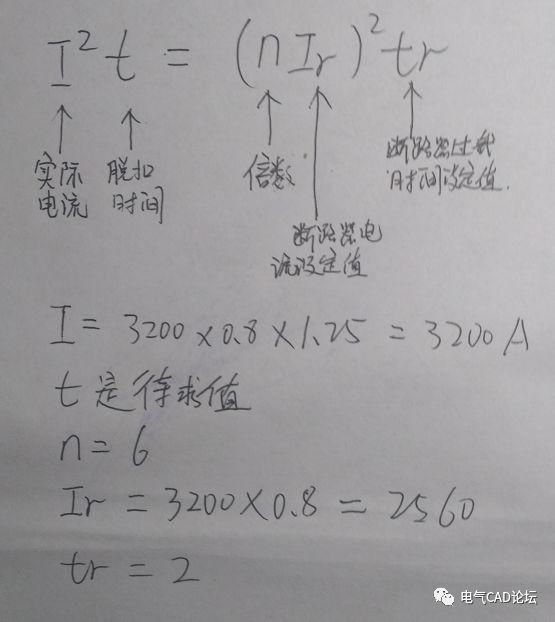 I²t = (nIr)²tr
实际
电流
脱扣
时间
倍数
断路器过载
时间设定值.
断路器电
流设定值
I = 3200×0.8×1.25 = 3200A
t是待求值
n=6
Ir = 3200×0.8 = 2560
tr = 2
电气CAD论坛